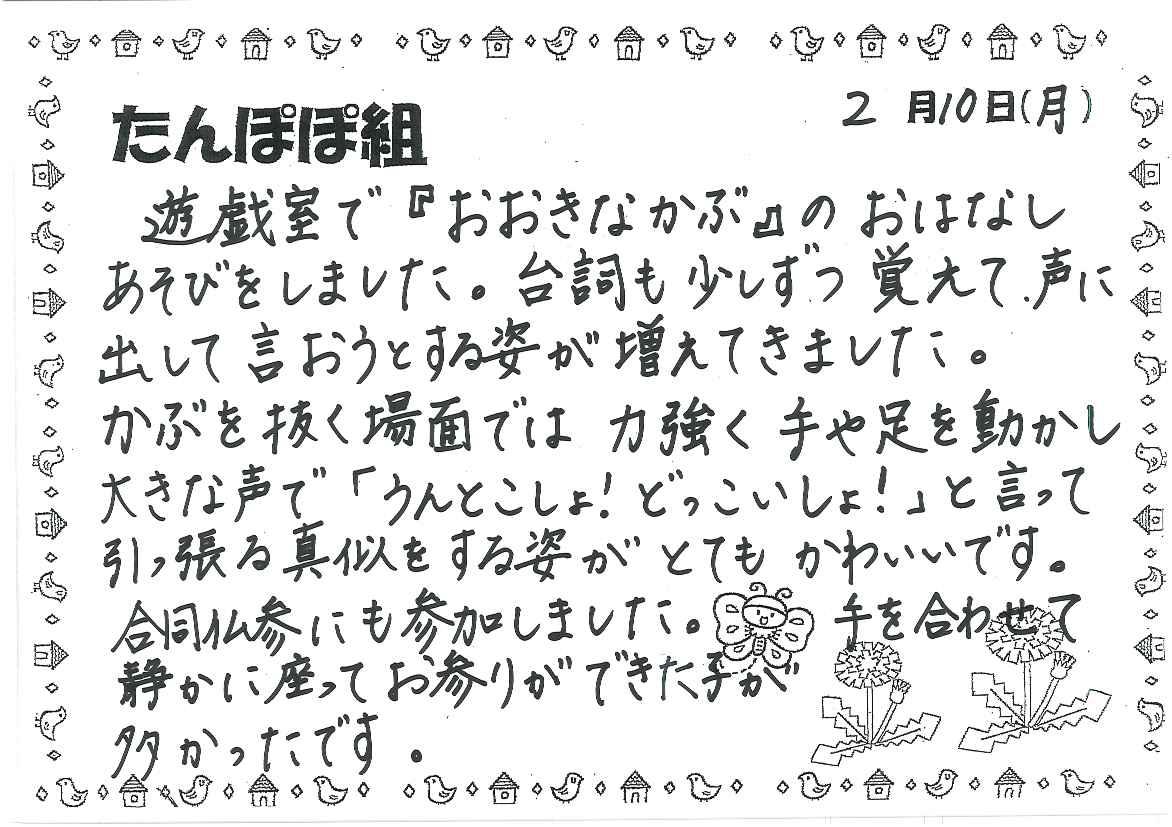 2月10日(月)
たんぽぽ組
遊戯室で『おおきなかぶ』のおはなし
あそびをしました。台詞も少しずつ覚えて、声に
出して言おうとする姿が増えてきました。
かぶを抜く場面では力強く手や足を動かし
大きな声で「うんとこしょ!どっこいしょ!」と言って
引っ張る真似をする姿がとてもかわいいです。
合同仏参にも参加しました。手を合わせて
静かに座ってお参りができた子が
多かったです。